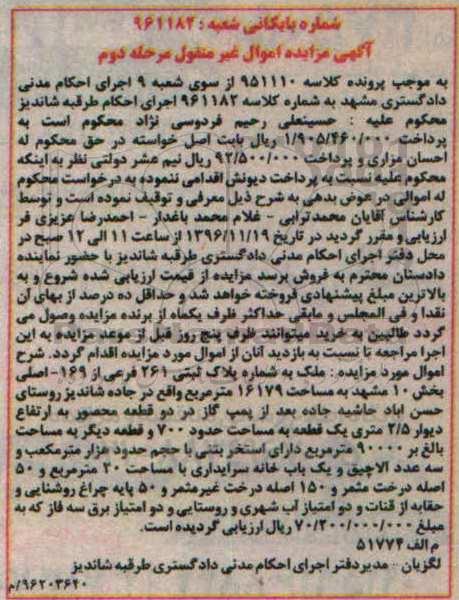 شماره بایگانی شعبه : ۹۶۱۱۸۲
آگهی مزایده اموال غیر منقول مرحله دوم
به موجب پرونده کلاسه ۹۵۱۱۱۰ از سوی شعبه ۹ اجرای احکام مدنی
دادگستری مشهد به شماره کلاسه ۹۶۱۱۸۲ اجرای احکام طرقبه شاندیز
محکوم علیه : حسینعلی رحیم فردوسی نژاد محکوم است به
پرداخت ۱/۹۰۵/۴۶۰/۰۰۰ ریال بابت اصل خواسته در حق محکوم له
احسان مزاری و پرداخت ۹۲/۵۰۰/۰۰۰ ریال نیم عشر دولتی نظر به اینکه
محکوم علیه نسبت به پرداخت دیونش اقدامی ننموده به درخواست محکوم
له اموالی در عوض بدهی به شرح ذیل معرفی و توقیف نموده است و توسط
کارشناس آقایان محمد ترابی - غلام محمد باغدار - احمدرضا عزیزی فر
ارزیابی و مقرر گردید در تاریخ ۱۳۹۶/۱۱/۱۹ از ساعت ۱۱ الی ۱۲ صبح در
محل دفتر اجرای احکام مدنی دادگستری طرقبه شاندیز با حضور نماینده
دادستان محترم به فروش برسد مزایده از قیمت ارزیابی شده شروع و به
بالاترین مبلغ پیشنهادی فروخته خواهد شد و حداقل ده درصد از بهای آن
نقدا و فی المجلس و مابقی حداکثر ظرف یکماه از برنده مزایده وصول می
گردد طالبین به خرید میتوانند ظرف پنج روز قبل از موعد مزایده به این
اجرا مراجعه تا نسبت به بازدید آنان از اموال مورد مزایده اقدام گردد. شرح
اموال مورد مزایده : ملک به شماره پلاک ثبتی ۲۶۱ فرعی از ۱۶۹- اصلی
بخش ۱۰ مشهد به مساحت ۱۶۱۷۹ مترمربع واقع در جاده شاندیز روستای
حسن اباد حاشیه جاده بعد از پمپ گاز در دو قطعه محصور به ارتفاع
دیوار ۲/۵ متری یک قطعه به مساحت حدود ۷۰۰ و قطعه دیگر به مساحت
بالغ بر ۹۰۰۰۰ مترمربع دارای استخر بتنی با حجم حدود هزار مترمکعب و
سه عدد آلاچیق و یک باب خانه سرایداری با مساحت ۲۰ مترمربع و ۵۰
اصله درخت مثمر و ۱۵۰ اصله درخت غیرمثمر و ۵۰ پایه چراغ روشنایی و
حقابه از قنات و دو امتیاز آب شهری و روستایی و دو امتیاز برق سه فاز که به
مبلغ ۷۰/۲۰۰/۰۰۰/۰۰۰ ریال ارزیابی گردیده است.
م الف ۵۱۷۷۴
لگزیان - مدیر دفتر اجرای احکام مدنی دادگستری طرقبه شاندیز
۹۶۲۰۳۶۴۰/م